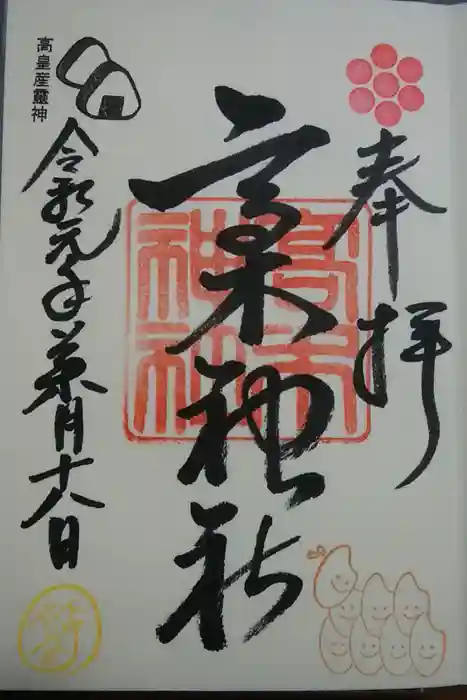 奉拝
高木神社
高木
神社
高皇産靈神
令和元年葉月十八日